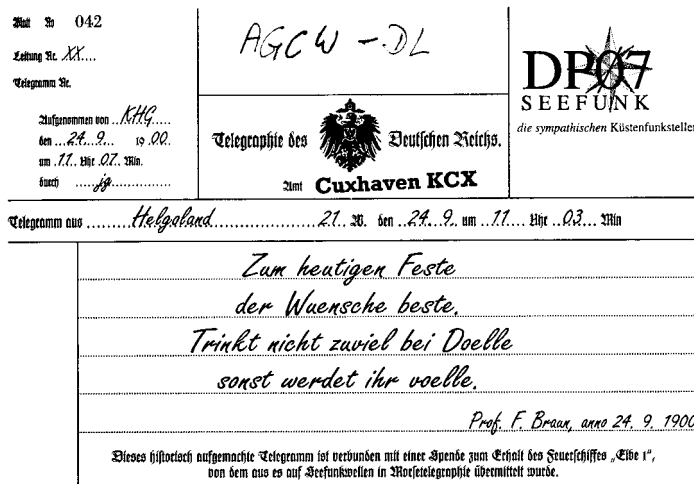 Blatt No 042
Leitung Nr. XX....
Telegramm Nr.
Aufgenommen von ..KHG...
den ...24...9.... 19 .00.
um .11.. Uhr .07.. Min.
durch .....jg...............
AGCW - DL
Telegraphie des Deutschen Reichs.
Amt Cuxhaven KCX
DP07
SEEFUNK
die sympathischen Küstenfunkstellen
Telegramm aus ........Helgoland....................21. W. den ..24...9.. um ..11.... Uhr ...03.... Min
Zum heutigen Feste
der Wuensche beste.
Trinkt nicht zuviel bei Doelle
sonst werdet ihr voelle.
Prof. F. Braun, anno 24. 9. 1900
Dieses historisch aufgemachte Telegramm ist verbunden mit einer Spende zum Erhalt des Feuerschiffes „Elbe 1",
von dem aus es auf Seefunkwellen in Morsetelegraphie übermittelt wurde.